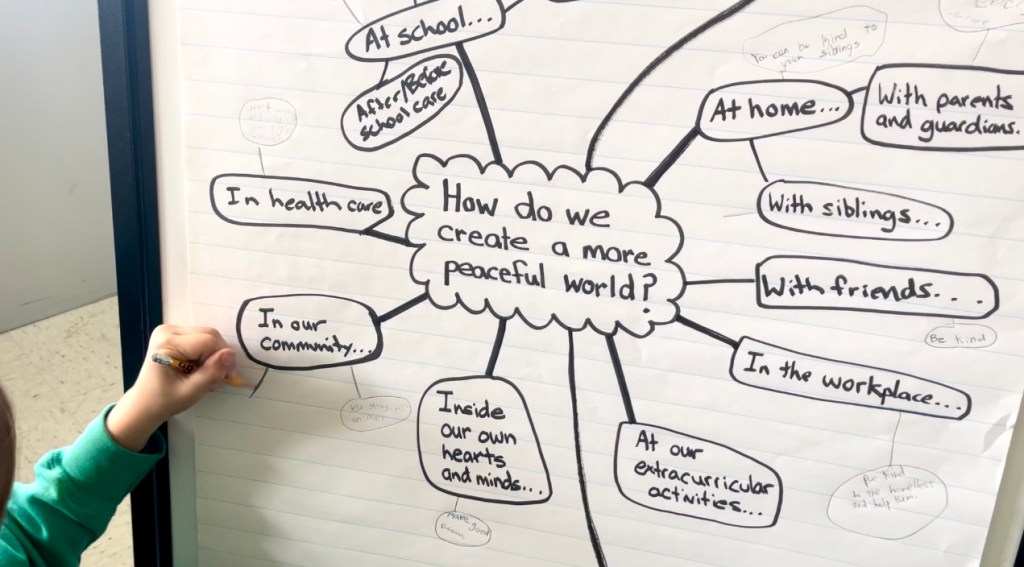 At school...
After/Before
school care
You can be kind to
your siblings
At home...
With parents
and guardians.
In health care
With siblings...
How do we
create a more
peaceful world?
With friends...
Be kind
In our
community...
In the workplace...
Inside
our own
hearts
and minds...
At our
extracurricular
activities...
to the homeless
and help them.